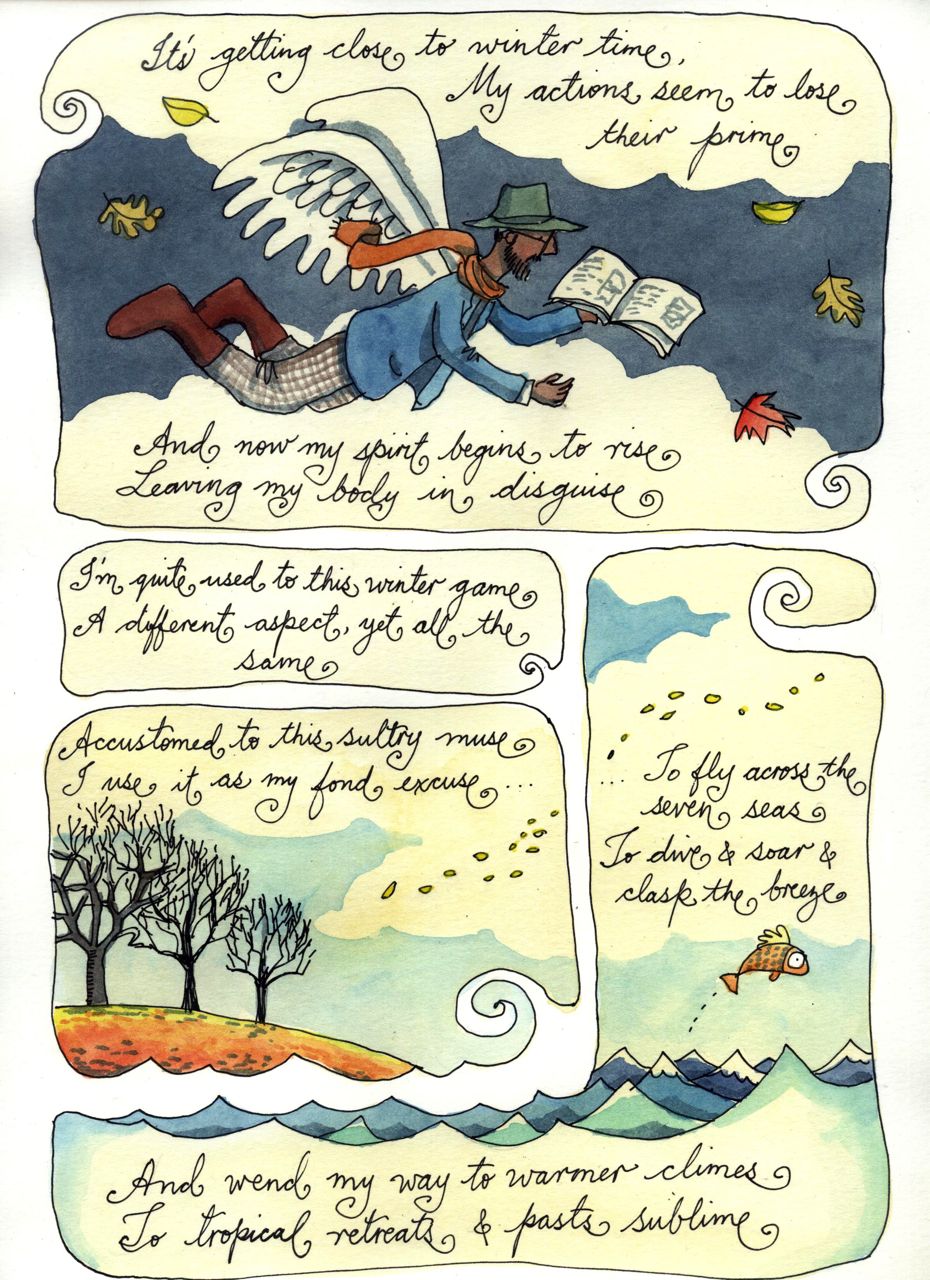 It's getting close to winter time,
My actions seem to lose
their prime
And now my spirit begins to rise
Leaving my body in disguise
I'm quite used to this winter game
A different aspect, yet all the
same
Accustomed to this sultry muse
I use it as my fond excuse ...
... To fly across the
seven seas
To dive & soar &
clasp the breeze
And wend my way to warmer climes
To tropical retreats & pasts sublime